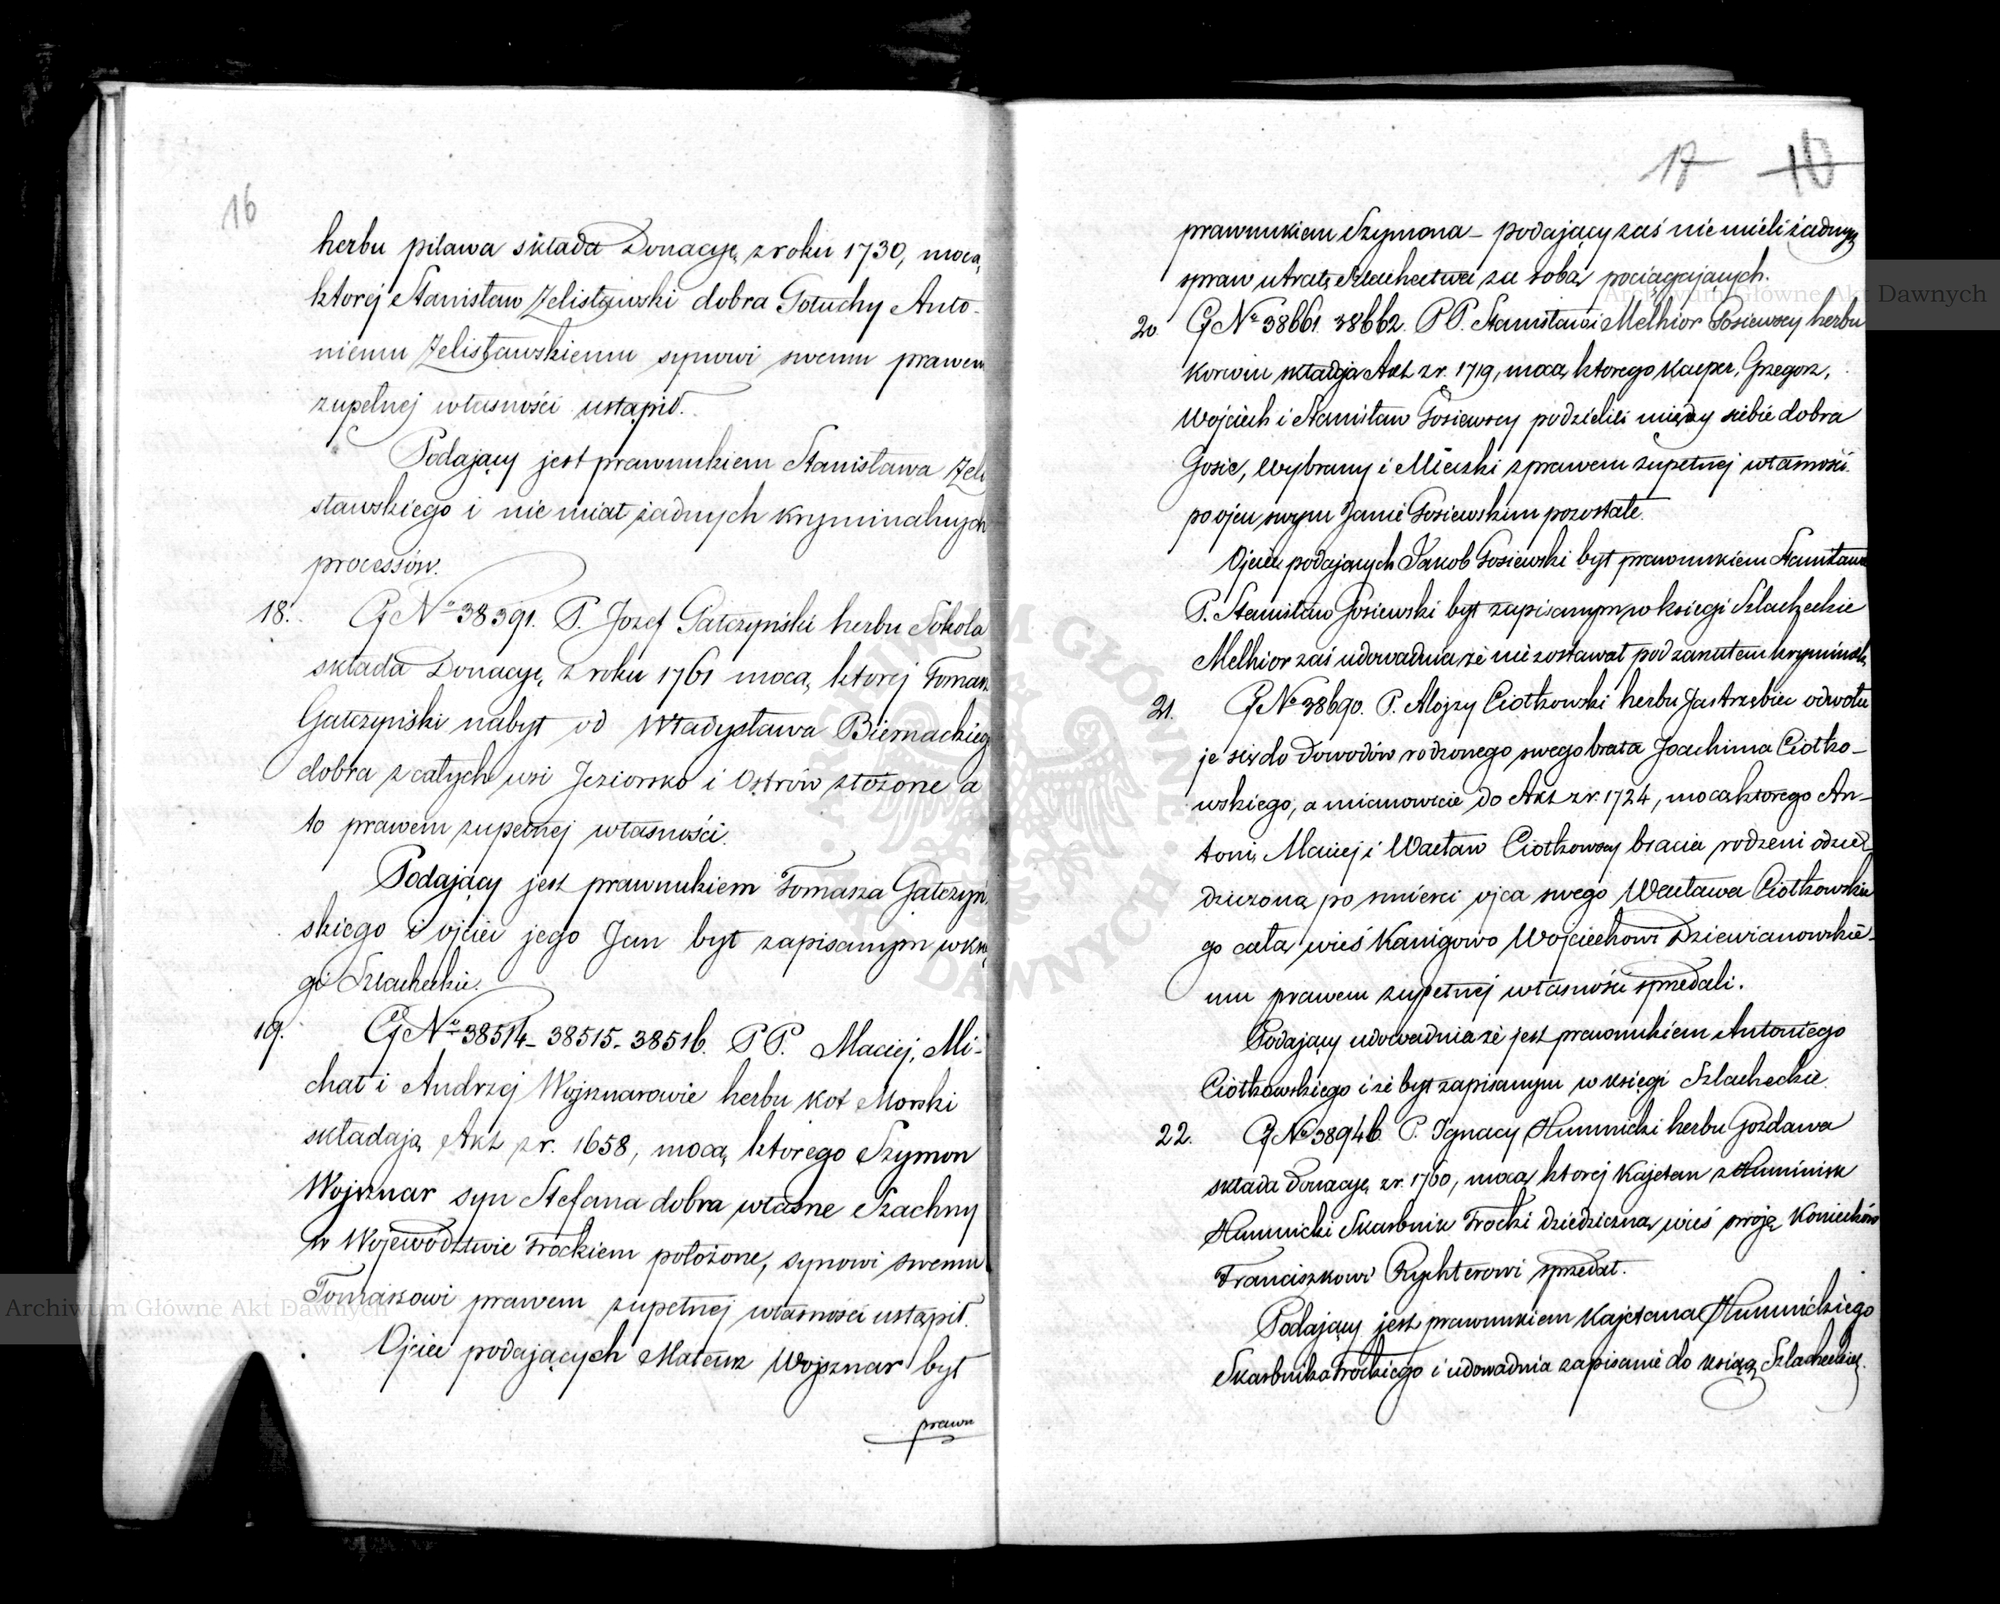 16
herbu pilawa składa Donacyę z roku 1730, mocą
ktorej Stanisław Zelisławski dobra Gołuchy Anto-
niemu Zelisławskiemu synowi swemu prawem
zupełnej własności ustąpił.
Podający jest prawnukiem Stanisława Zeli
sławskiego i nie miał żadnych kryminalnych
processów.
18. G No 38391. P. Jozef Gałczyński herbu Sokola
składa Donacyę z roku 1761 mocą, ktorej Tomasz
Gałczyński nabył od Władysława Biernackieg
dobra z całych wsi Jeziorsko i Ostrów złożone a
to prawem zupełnej własności.
Podający jest prawnukiem Tomasza Gałczyń
skiego i ojciec jego Jan był zapisanym w ksi
gi Szlacheckie.
19. G No 38514- 38515- 38516. PP. Maciej, Mi-
chał i Andrzej Wojsznarowie herbu Kot Morski
składają Akt z r. 1658, mocą, ktorego Szymon
Wojsznar syn Stefana dobra własne Szachny
w Województwie Trockiem położone, synowi swemu
Tomaszowi prawem zupełnej własności ustąpił.
Ojciec podających Mateusz Wojsznar był
prawn
17 10
prawnukiem Szymona – podający zaś nie mieli żadnych
spraw utratę Szlachectwa za sobą pociągających.
20. G No 38661. 38662. PP. Stanisław i Melhior Gosiewscy herbu
Korwin składają Akt z r. 1719, mocą, ktorego Kacper, Grzegorz,
Wojciech i Stanisław Gosiewscy podzielili między siebie dobra
Gosie, Wybrany i Mieczki z prawem zupełnej własności
po ojcu swym Janie Gosiewskim pozostałe.
Ojciec podających Jakob Gosiewski był prawnukiem Stanisława
P. Stanisław Gosiewski był zapisanym w księgi Szlacheckie
Melhior zaś udowadnia że nie zostawał pod zarzutem kryminal.
21. G No 38690. P. Alojzy Ciołkowski herbu Jastrzębiec odwołu
je się do Dowodów rodzonego swego brata Joachima Ciołko-
wskiego, a mianowicie do Akt z r. 1724, mocą ktorego An-
toni, Maciej i Wacław Ciołkowscy bracia rodzeni odzie-
dziczoną po śmierci ojca swego Wacława Ciołkowskie
go całą wieś Kanigowo Wojciechowi Dziewianowskie-
mu prawem zupełnej własności sprzedali.
Podający udowadnia że jest prawnukiem Antoniego
Ciołkowskiego i że był zapisanym w księgi Szlacheckie.
22. G No 38946. P. Ignacy Humnicki herbu Gozdawa
składa Donacyę z r. 1760, mocą ktorej Kajetan z Huminisk
Humnicki Skarbnik Trocki dziedziczną wieś swoją Koniecków
Franciszkowi Rychterowi sprzedał.
Podający jest prawnukiem Kajetana Humnickiego
Skarbnika Trockiego i udowadnia zapisanie do ksiąg Szlacheckich.
Archiwum Główne Akt Dawnych
Archiwum Główne Akt Dawnych
ARCHIWUM GŁÓWNE AKT DAWNYCH